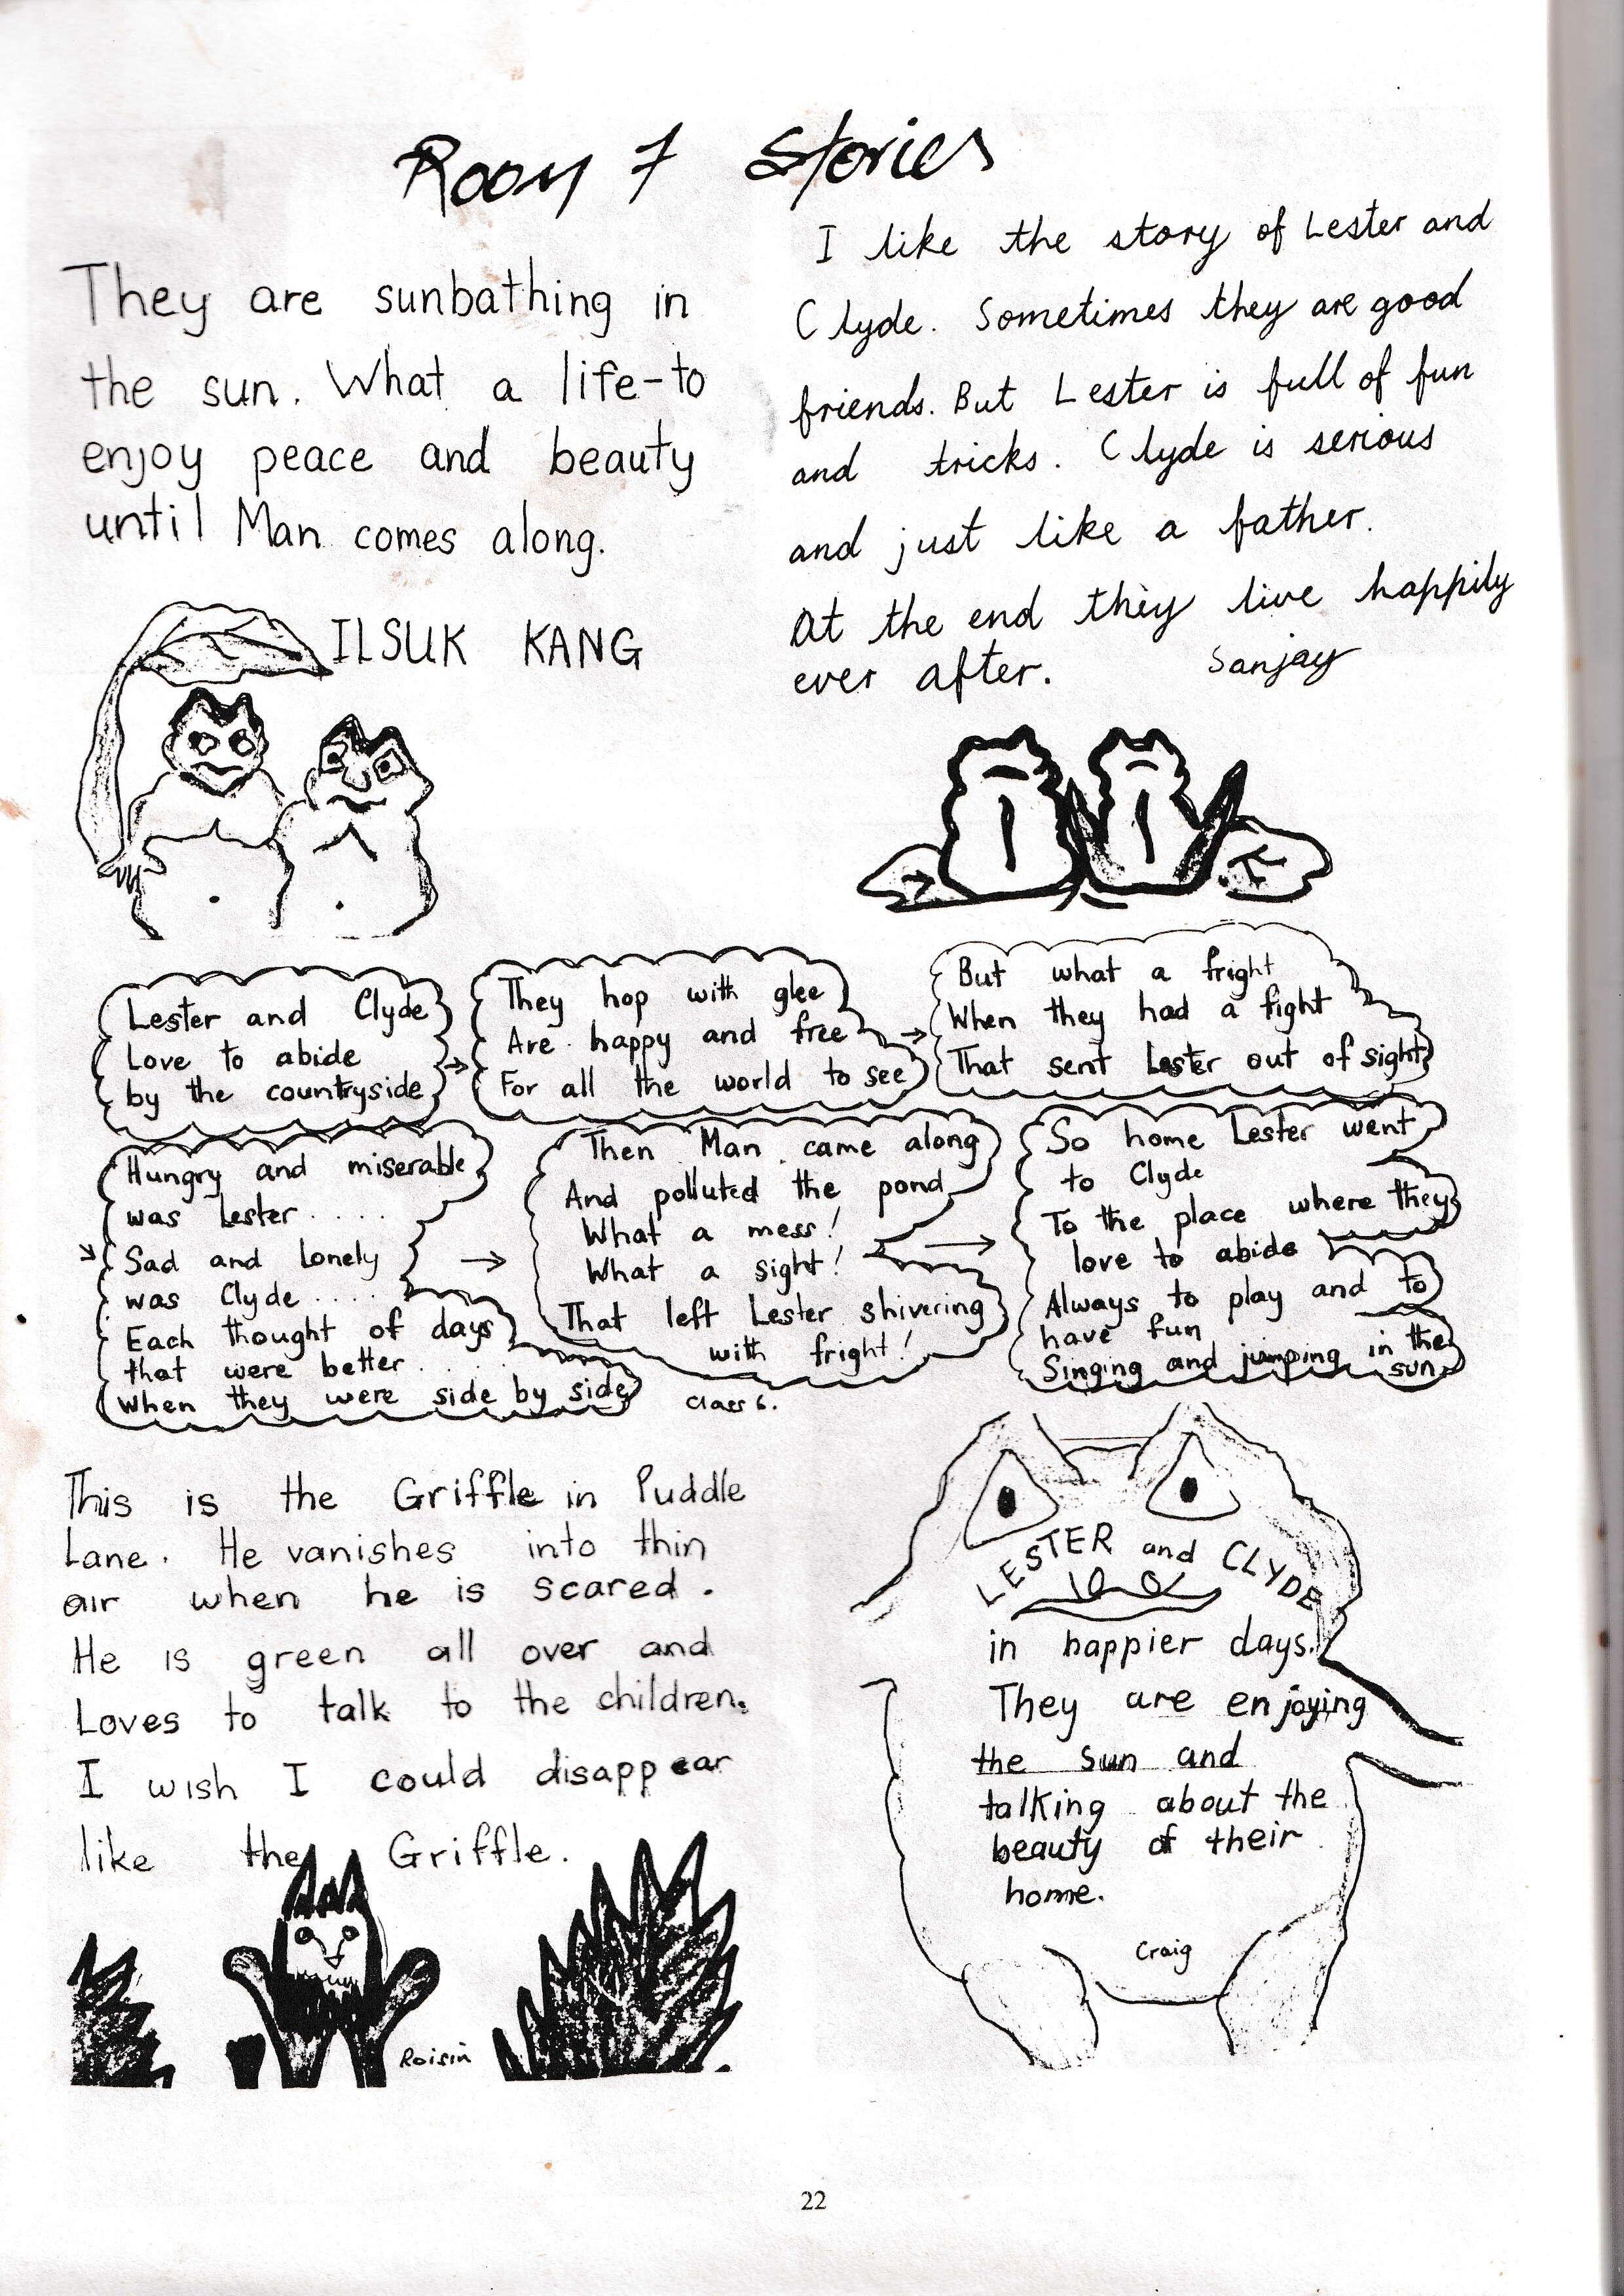 Room 7 Stories
They are sunbathing in
the sun. What a life-to
enjoy peace and beauty
until Man comes along.
ILSUK KANG
I like the story of Lester and
Clyde. Sometimes they are good
friends. But Lester is full of fun
and tricks. Clyde is serious
and just like a father.
At the end they live happily
ever after.
Sanjay
Lester and Clyde
Love to abide
by the countryside
They hop with glee
Are happy and free
For all the world to see
But what a fright
When they had a fight
That sent Lester out of sight
Hungry and miserable
was Lester.....
Sad and Lonely
was Clyde....
Each thought of days
that were better....
When they were side by side
Then Man came along
And polluted the pond
What a mess!
What a sight!
That left Lester shivering
with fright!
Class 6.
So home Lester went
to Clyde
To the place where they
love to abide
Always to play and to
have fun
Singing and jumping in the
sun
This is the Griffle in Puddle
Lane. He vanishes into thin
air when he is scared.
He is green all over and
Loves to talk to the children.
I wish I could disappear
like the Griffle.
Roisin
LESTER and CLYDE
in happier days.
They are enjoying
the sun and
talking about the
beauty of their
home.
Craig
22